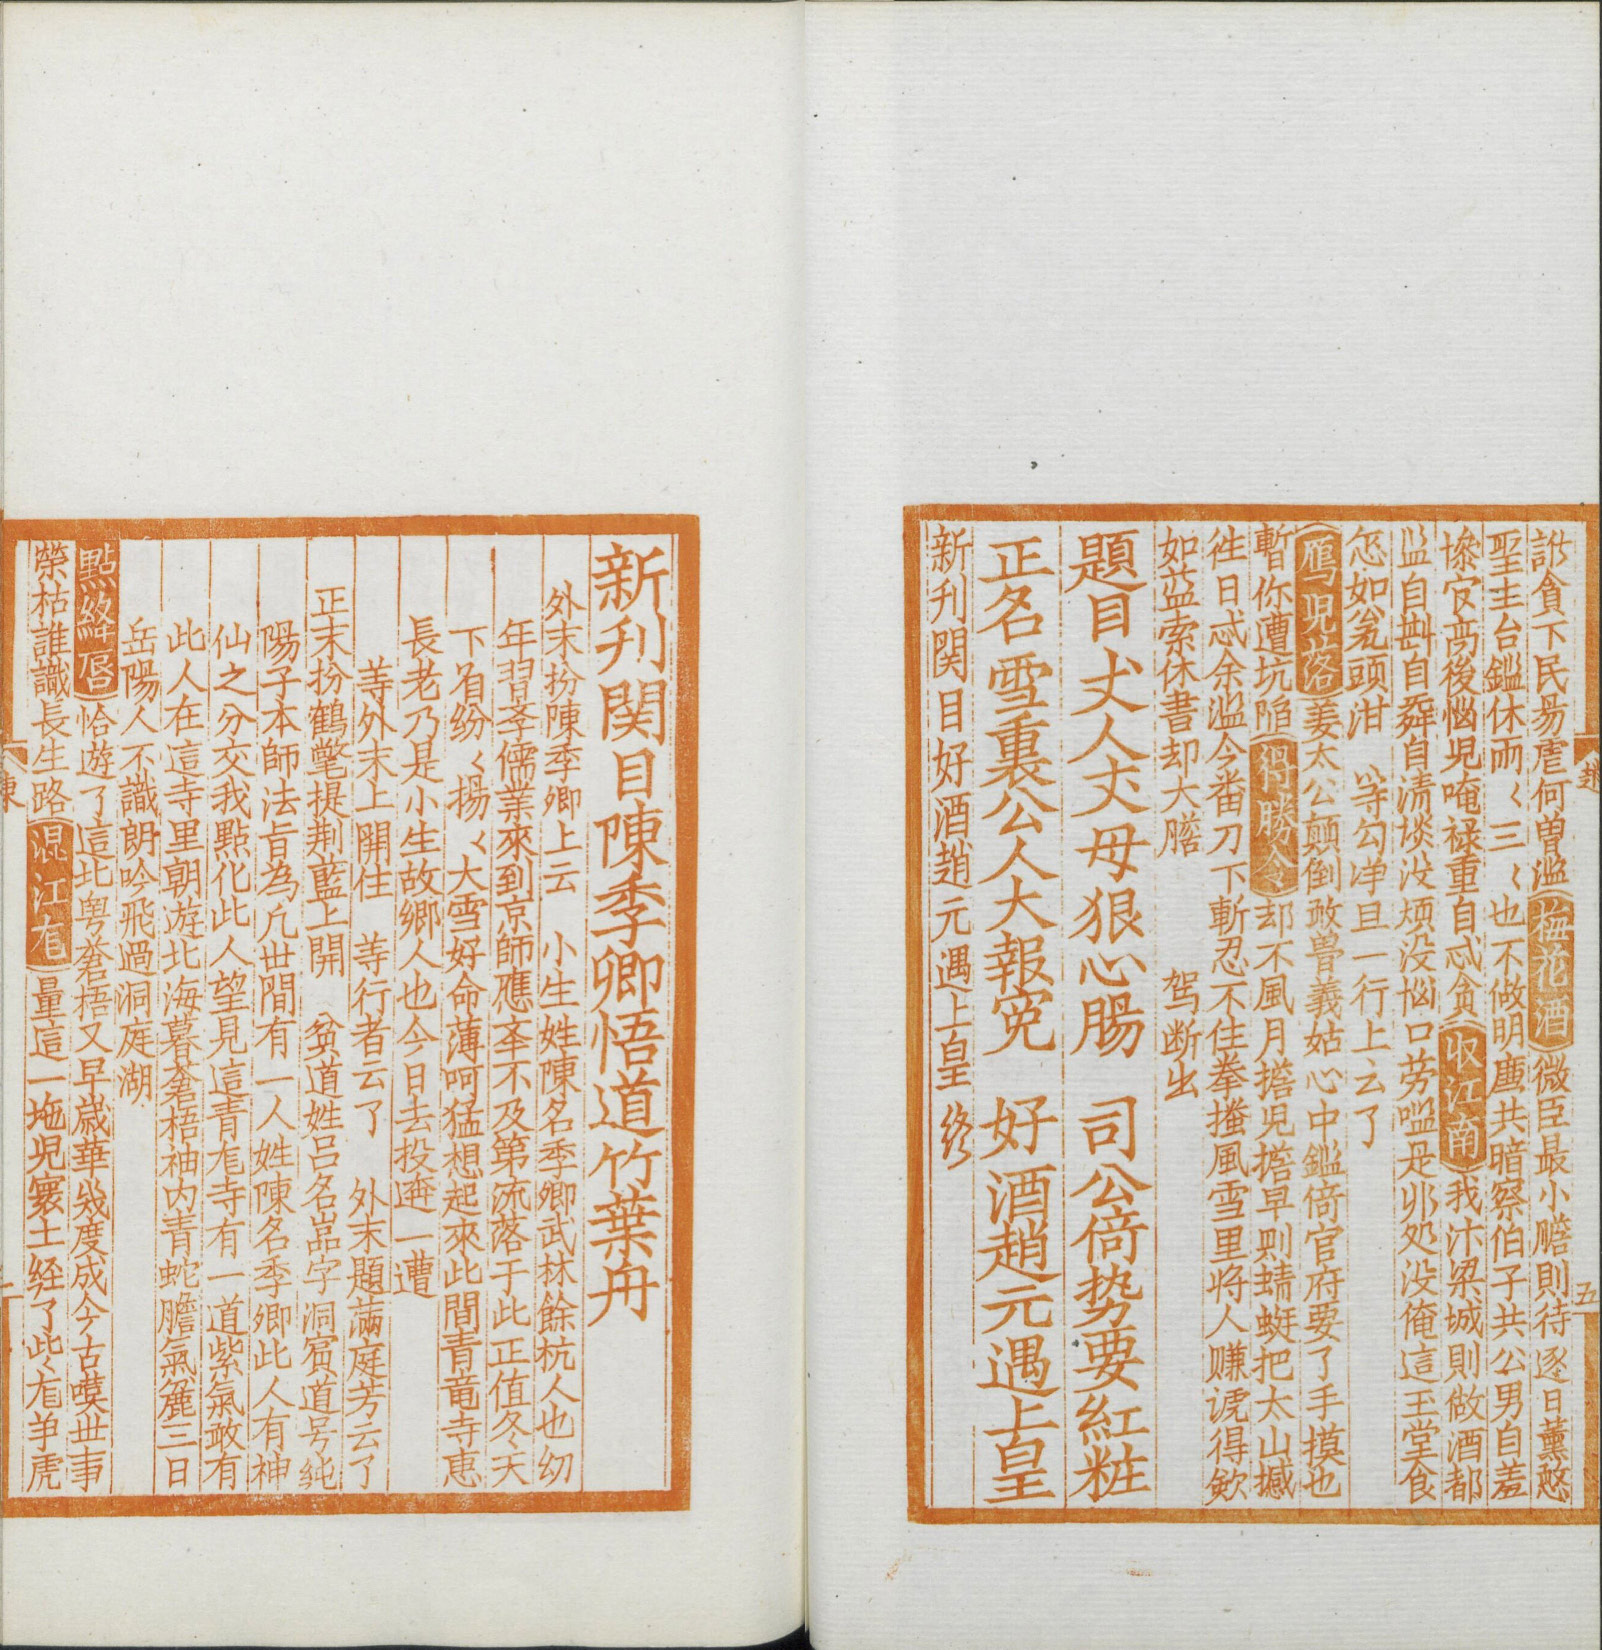 訛貪下民易虐何曽濫梅花酒微臣最小膽則待逐日薰
聖主台鑑休两く三く也不做明廉共暗察伯子共公男自羞
慘官高後悩児唵禄重自忒貪収江南我汴梁城則做酒都
监自斟自舜自清埮没煩没悩口劳嗞是邜処没俺這玉堂食
怎如瓮頭泔 等勾净旦一行上云了
鴈児落姜太公顛倒敢兽義姑心中鑑倚官府要了手摸也
暫你遭坑陥得勝令却不風月擔児擔早則蜻蜓把太山撼
徃日忒余濫今番刀下斬忍不住拳搔風雪里将人赚謊得欽
如监索休書却大膽 驾断出
題目 丈人丈母狠心腸 司公倚势要紅粧
正名 雪裏公人大報寃 好酒趙元遇上皇
新刋関目好酒趙元遇上皇 終
趙
五
新刋関目陳季卿悟道竹葉舟
外末扮陳季卿上云 小生姓陳名季卿武林餘杭人也幼
年習孝儒業來到京師應本不及第流落于此正值冬天
下有纷く揚く大雪好命薄呵猛想起來此間青竜寺恵
長老乃是小生故鄉人也今日去投逩一遭
等外末上開住 等行者云了 外末題滿庭芳云了
正末扮鶴氅提荆藍上開 貧道姓呂名嵓字洞賔道号純
陽子本師法旨為凢世間有一人姓陳名季卿此人有神
仙之分交我點化此人望見這青竜寺有一道紫氣敢有
此人在這寺里朝遊北海暮蒼梧袖内青蛇膽氣麄三日
岳陽人不識朗吟飛過洞庭湖
點絳唇恰遊了這北粤蒼梧又早歳華幾度成今古嘆世事
榮枯誰識長生路混江竜量這一塊児寰土经了此く竜争虎
陳
一